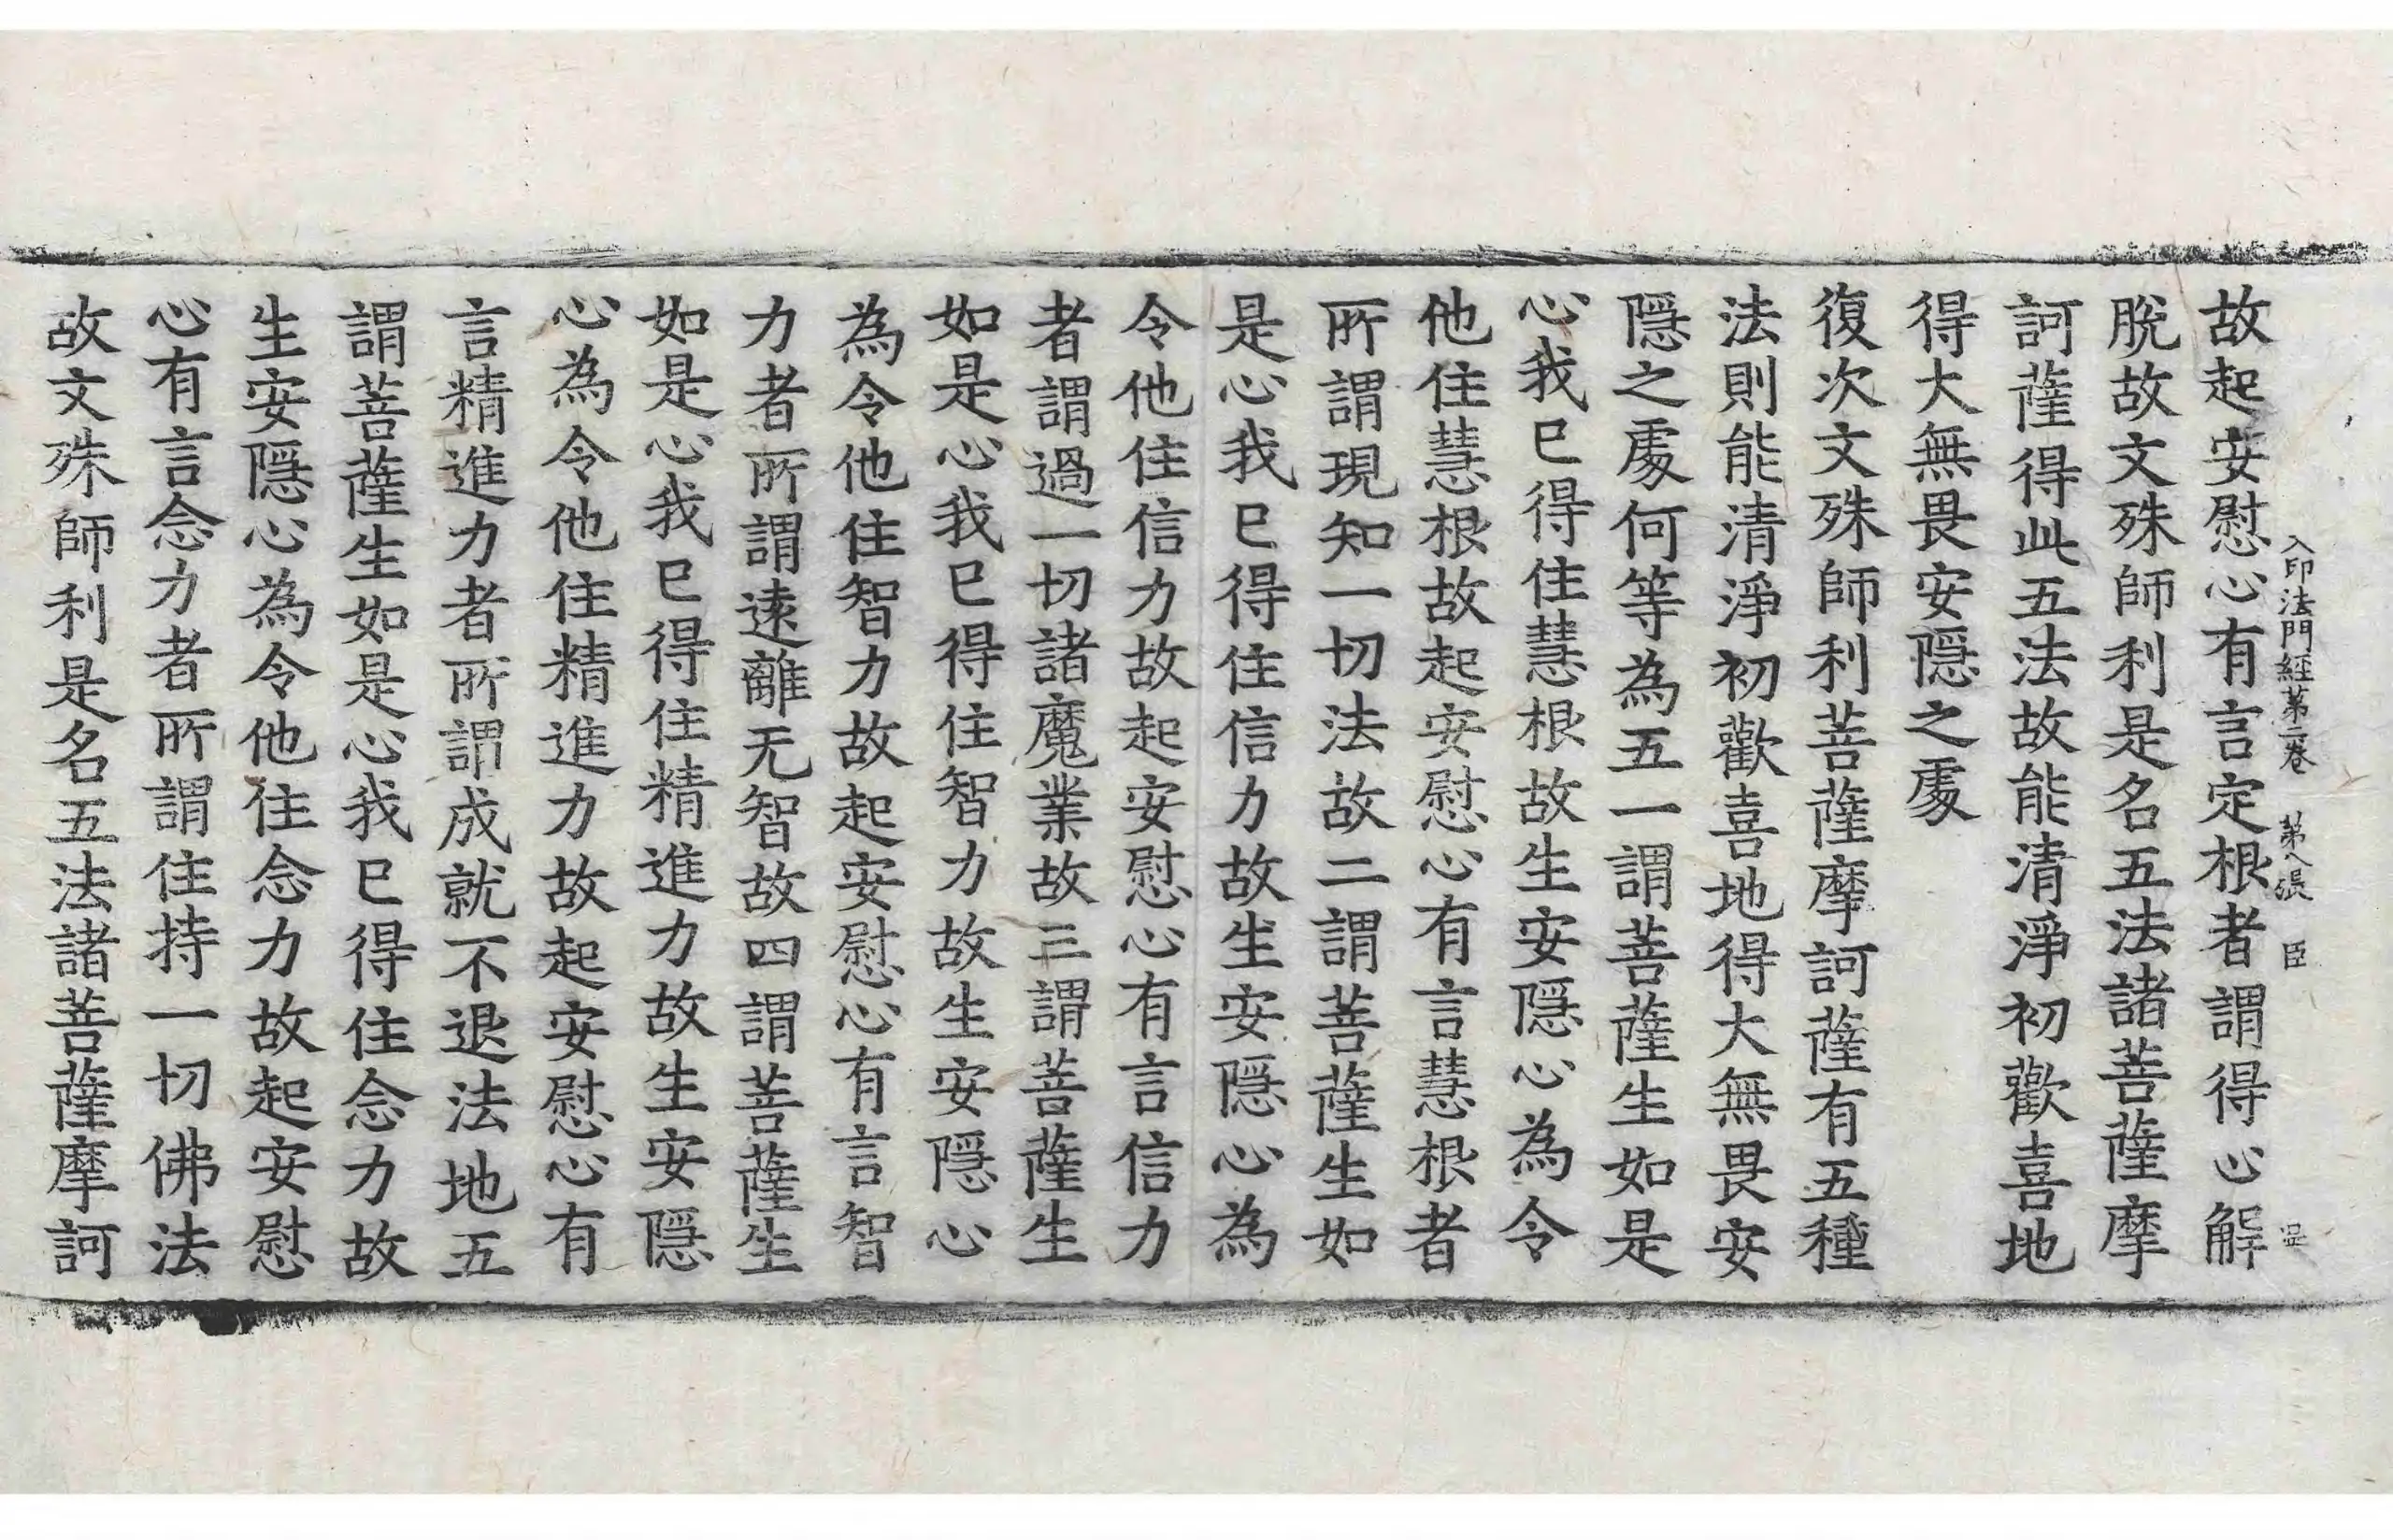 入印法門經第二卷 第八張 臣
故起安慰心有言定根者謂得心解
脫故文殊師利是名五法諸菩薩摩
訶薩得此五法故能清淨初歡喜地
得大無畏安隱之處
復次文殊師利菩薩摩訶薩有五種
法則能清淨初歡喜地得大無畏安
隱之處何等為五一謂菩薩生如是
心我已得住慧根故生安隱心為令
他住慧根故起安慰心有言慧根者
所謂現知一切法故二謂菩薩生如
是心我已得住信力故生安隱心為
令他住信力故起安慰心有言信力
者謂過一切諸魔業故三謂菩薩生
如是心我已得住智力故生安隱心
為令他住智力故起安慰心有言智
力者所謂遠離无智故四謂菩薩生
如是心我已得住精進力故生安隱
心為令他住精進力故起安慰心有
言精進力者所謂成就不退法地五
謂菩薩生如是心我已得住念力故
生安隱心為令他住念力故起安慰
心有言念力者所謂住持一切佛法
故文殊師利是名五法諸菩薩摩訶